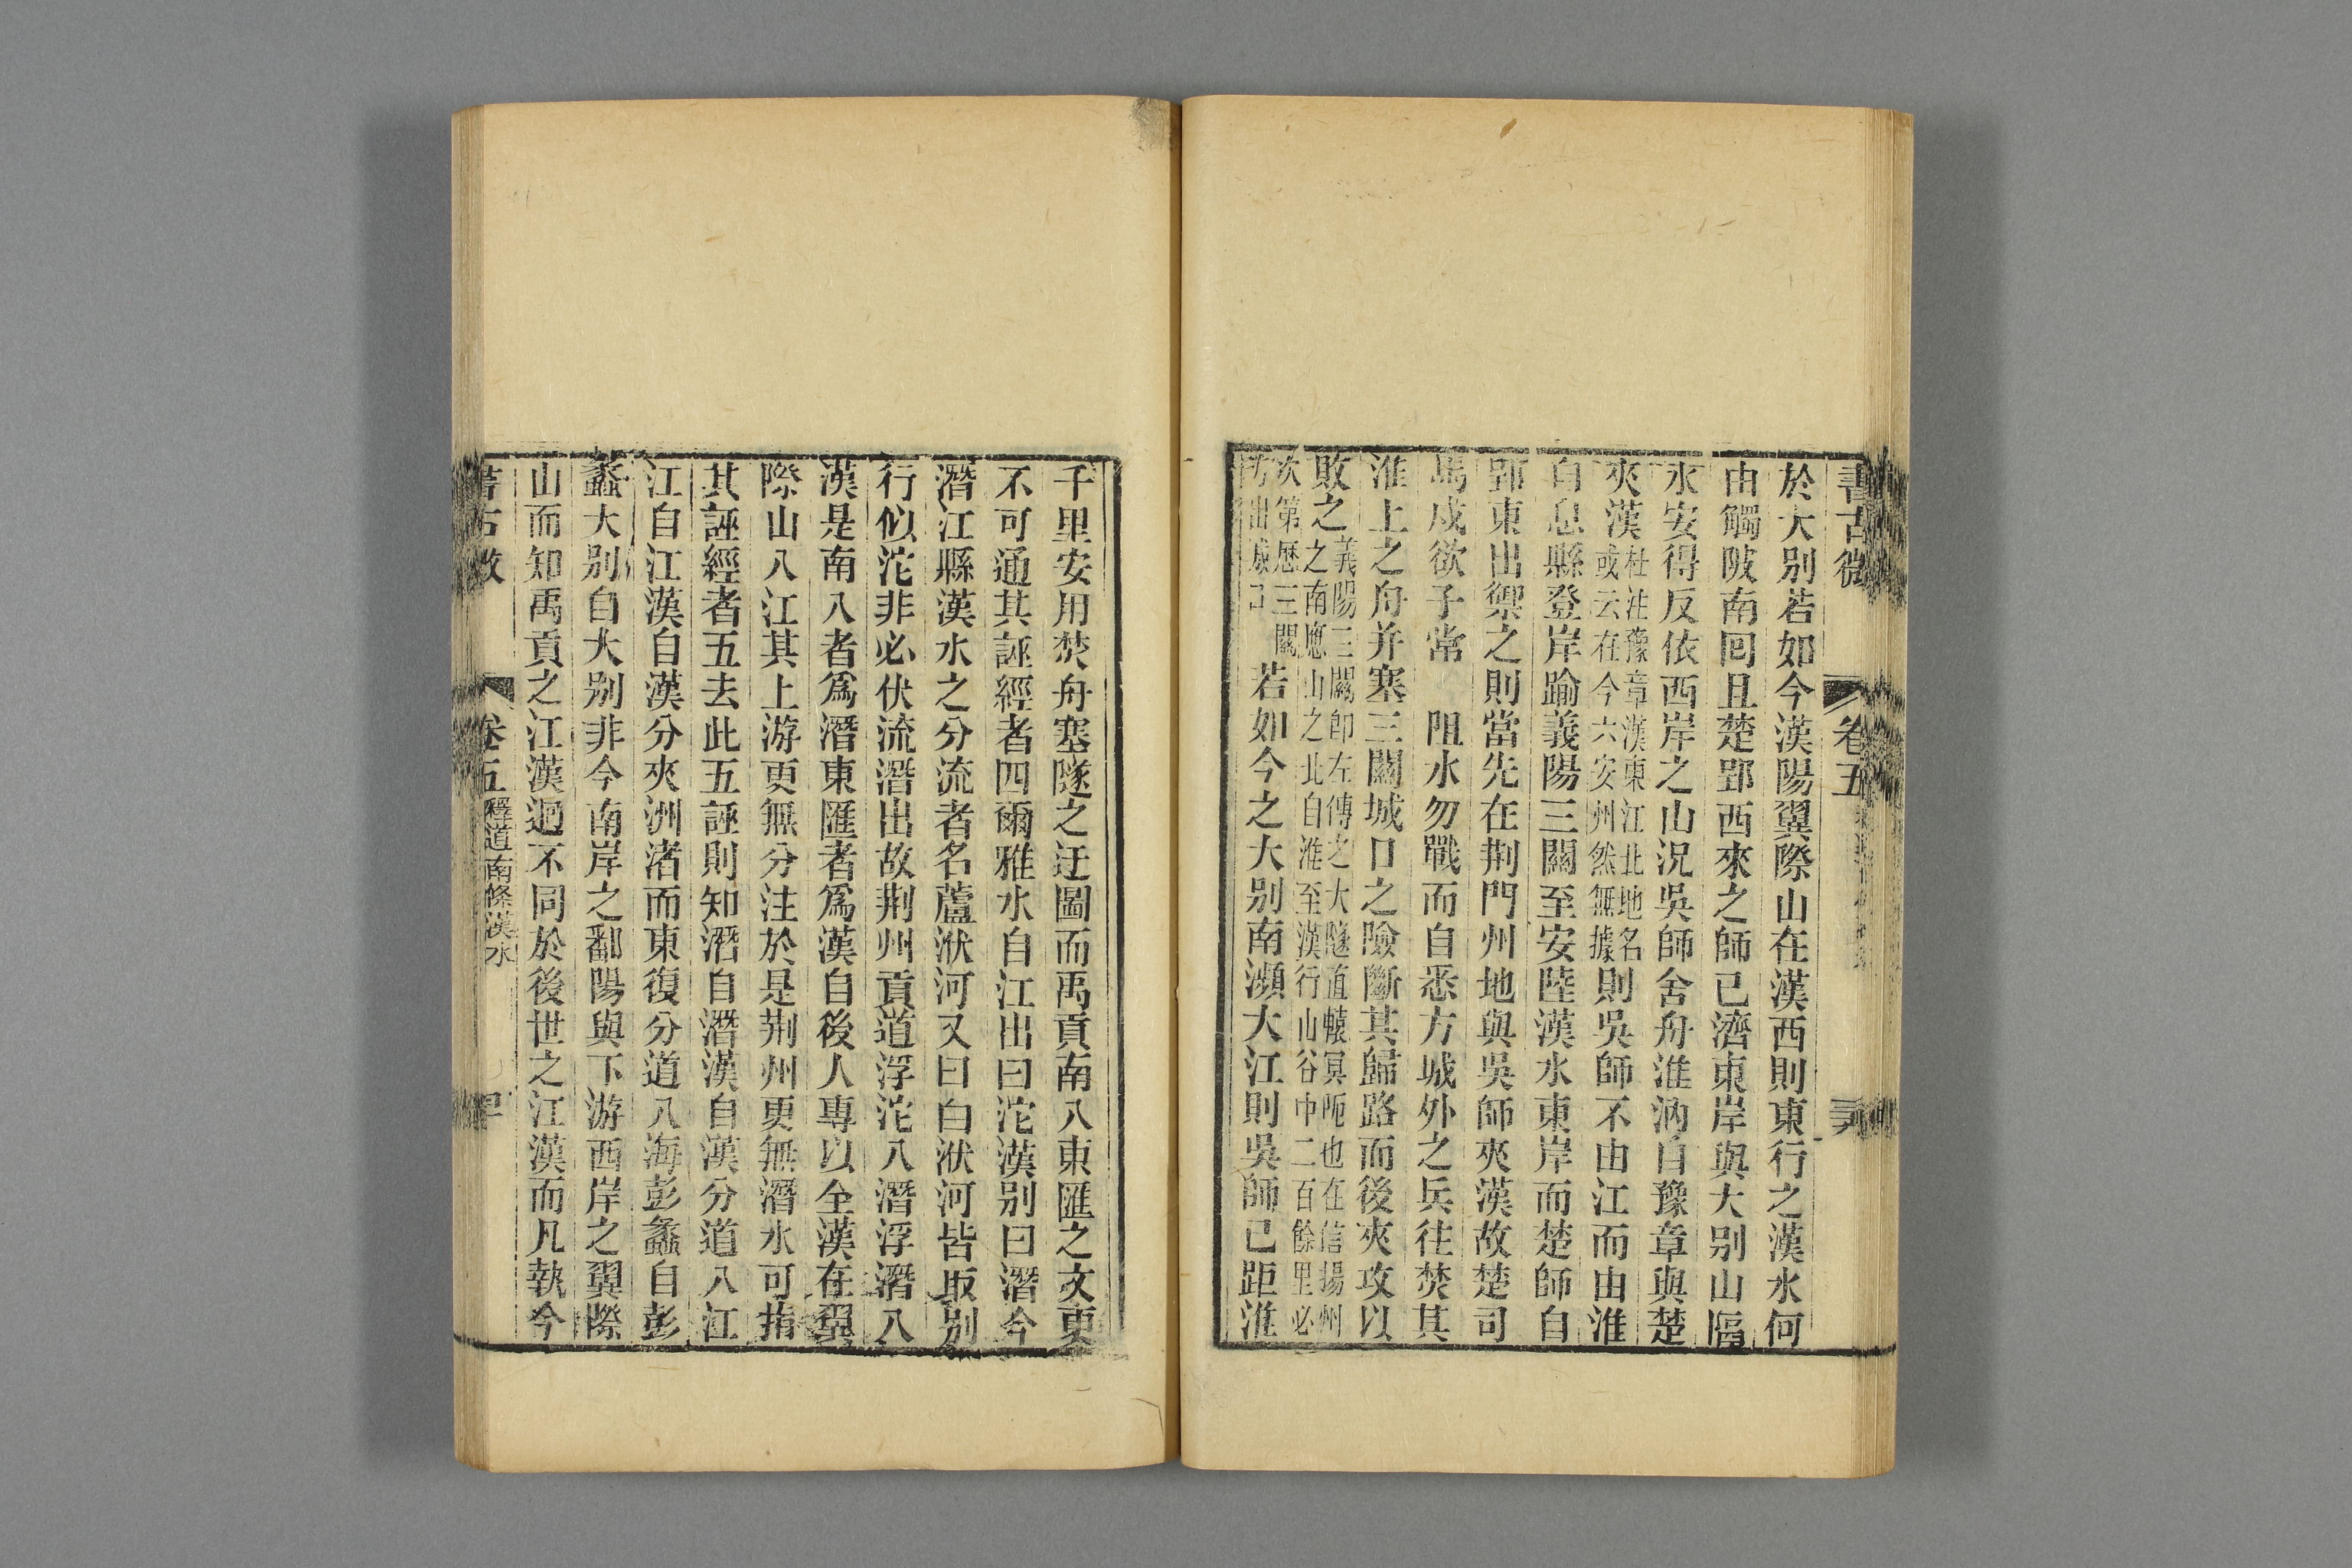 書古微
卷五
於大别若如今漢陽翼際山在漢西則東行之漢水何
由觸陂南回且楚郢西來之師已濟東岸與大别山隔
水安得反依西岸之山況吳師舍舟淮汭自豫章與楚
夾漢杜注豫章漢東江北地名或云在今六安州然無據則吳師不由江而由淮
自息縣登岸踰義陽三關至安陸漢水東岸而楚師自
郢東出禦之則當先在荆門州地與吳師夾漢故楚司
馬戍欲子常阻水勿戰而自悉方城外之兵往焚其
淮上之舟并塞三關城口之險斷其歸路而後夾攻以
敗之義陽三關卽左傳之大隧直轅冥阨也在信揚州之南應山之北自淮至漢行山谷中二百餘里必
次第歷三關出若如今之大别南瀕大江則吳師已距淮
千里安用焚舟塞隧之迂圖而禹貢南入東匯之文更
不可通其誣經者四爾雅水自江出曰沱漢别曰潛今
潛江縣漢水之分流者名蘆洑河又曰白洑河皆取别
行似沱非必伏流潛出故荆州貢道浮沱入潛浮潛入
漢是南入者爲潛東匯者爲漢自後人專以全漢在翼
際山入江其上游更無分注於是荆州更無潛水可指
其誣經者五去此五誣則知潛自潛漢自漢分道入江
江自江漢自漢分夾洲渚而東復分道入海彭蠡自彭
蠡大别自大别非今南岸之鄱陽與下游西岸之翼際
山而知禹貢之江漢迥不同於後世之江漢而凡執今
書古微
卷五 釋道南條漢水